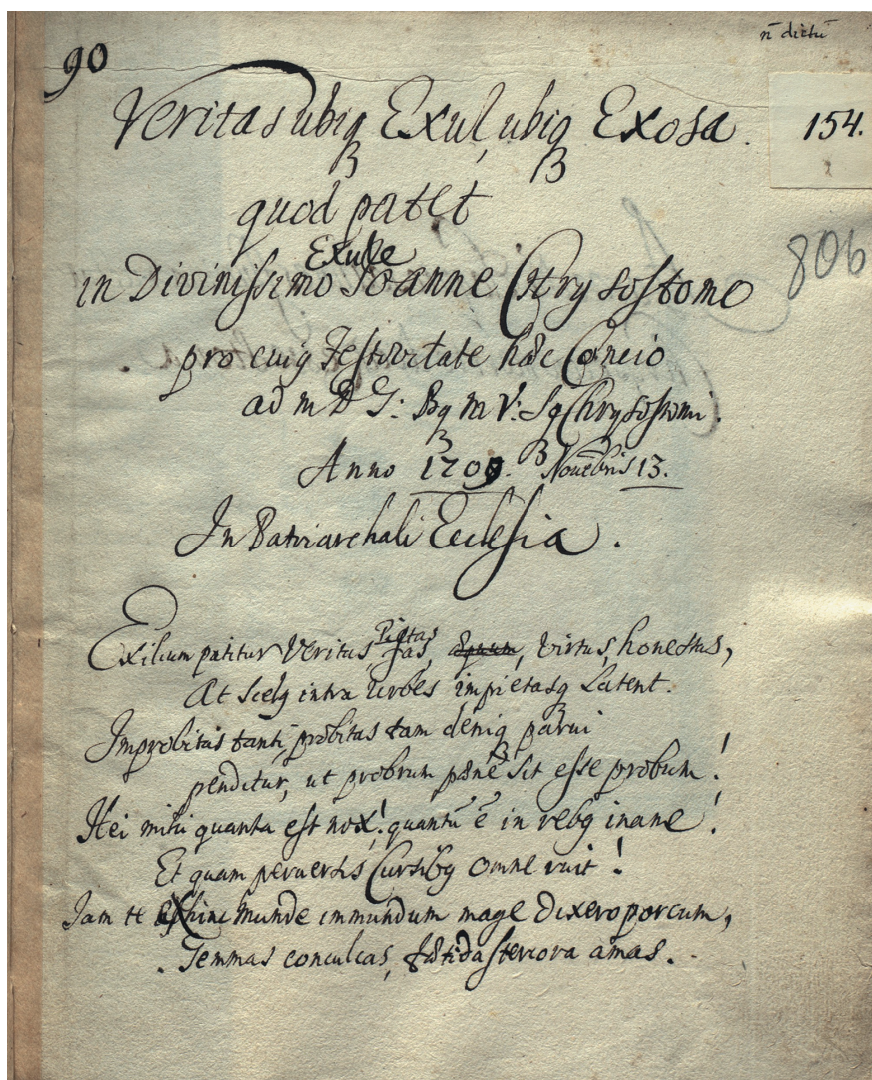 n̄ dictū
90
Veritas ubiqꝫ Exul, ubiqꝫ Exosa.
154.
quod patet
Exule
in Divinissimo Ioanne Chrysostomo
806
pro cuiꝰ Festivitate hæc Concio
ad m D G: Bꝫ m V: Sqꝫ Chrysostomi.
Anno 1709. Novēbris 13.
In Patriarchali Ecclesia.
Pietas
Exilium patitur Veritas, fas, æquum, virtus, honestas,
At scelꝰ intra urbes impietasqꝫ Latent.
Improbitas tanti, probitas tam deniqꝫ parui
penditur, ut probrum pænè sit esse probum!
Hei mihi quanta est nox! quantū ē in rebꝰ inane!
Et quam peruersis Cursibꝰ omne ruit!
Iam te hinc Munde immundum mage dixero porcum,
Gemmas conculcas, fætida stercora amas.